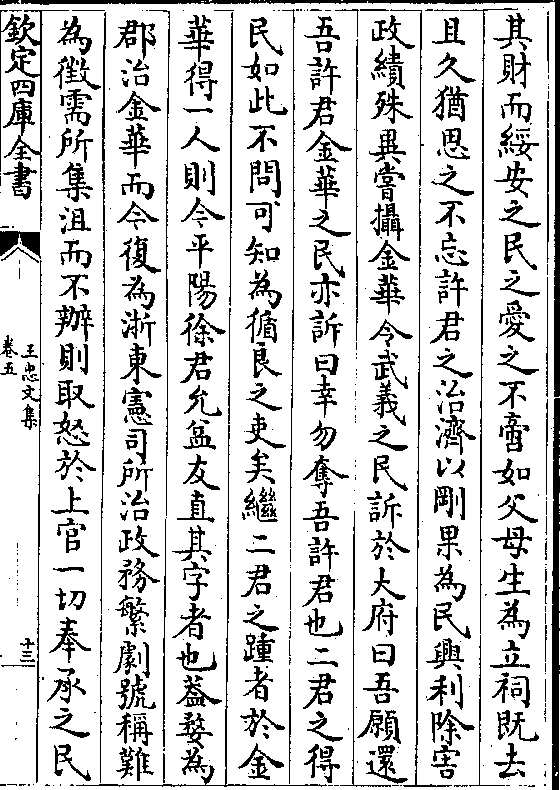 其財而綏安之民之愛之不啻如父母生為立祠既去
且久猶思之不忘許君之治濟以剛果為民興利除害
政績殊異嘗攝金華令武義之民訴於大府曰吾願還
吾許君金華之民亦訴曰幸勿奪吾許君也二君之得
民如此不問可知為循良之吏矣繼二君之踵者於金
華得一人則令平陽徐君允益友直其字者也葢婺為
郡治金華而今復為浙東憲司所治政務繁劇號稱難
為徵需所集沮而不辦則取怒於上官一切奉承之民
欽定四庫全書
王忠文集
卷五
十三